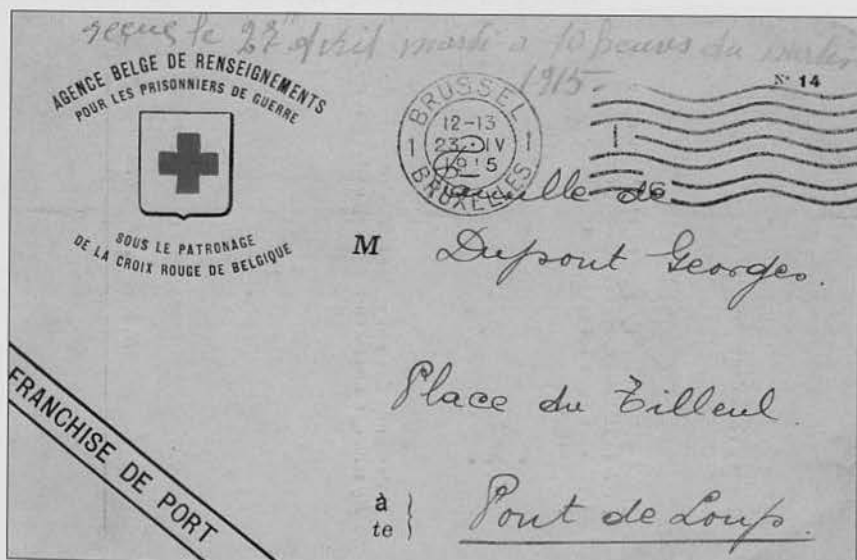 reçus le 27 Avril mardi a 10 heures du matin
1915
AGENCE BELGE DE RENSEIGNEMENTS
POUR LES PRISONNIERS DE GUERRE
SOUS LE PATRONAGE
DE LA CROIX ROUGE DE BELGIQUE
N° 14
BRUSSEL
12-13
1 23 IV 1
1915
BRUXELLES
Famille de
M Dupont Georges.
Place du Tilleul.
à
te } Pont de Loup.
FRANCHISE DE PORT